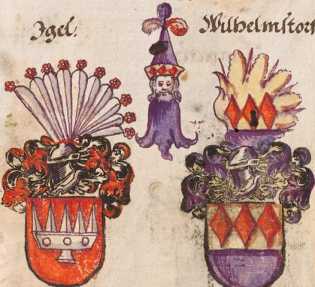 Igel.
Wilhelmstorf